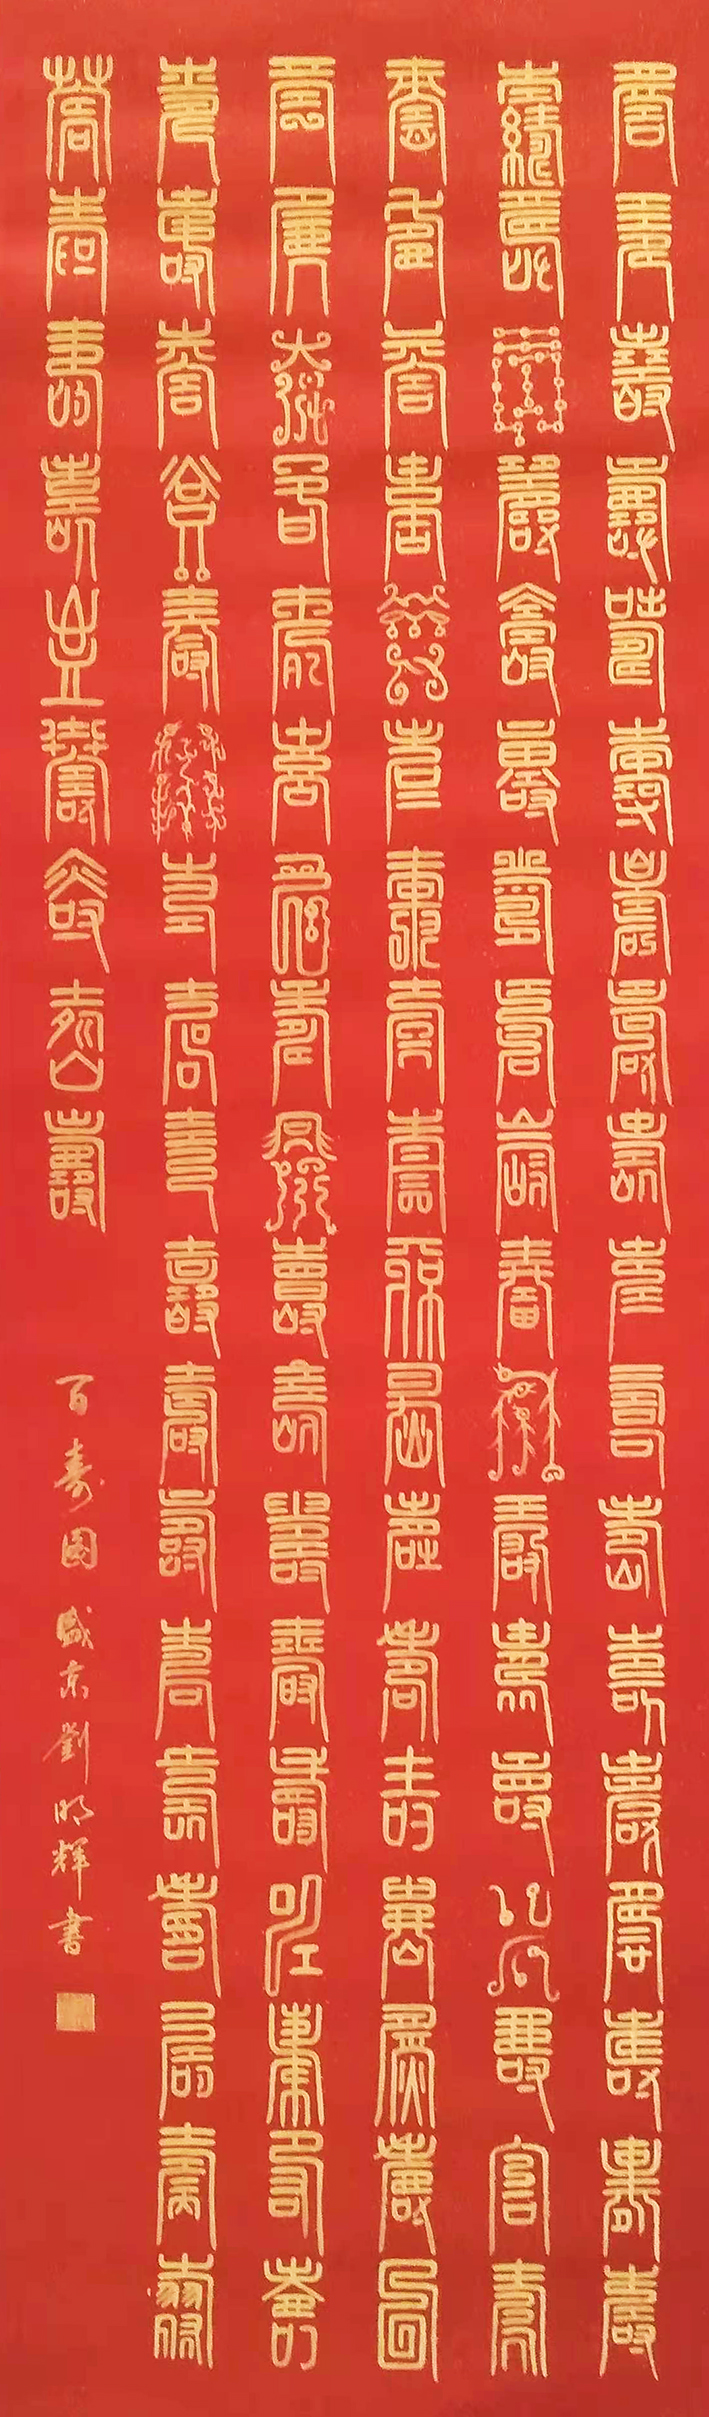 壽壽壽壽壽壽壽壽壽壽壽壽壽壽壽壽壽壽
壽壽壽壽壽壽壽壽壽壽壽壽壽壽壽壽壽壽
壽壽壽壽壽壽壽壽壽壽壽壽壽壽壽壽壽壽
壽壽壽壽壽壽壽壽壽壽壽壽壽壽壽壽壽壽
壽壽壽壽壽壽壽壽壽壽壽壽壽壽壽壽壽壽
壽壽壽壽壽壽壽壽壽
百壽图 盛京劉明輝書